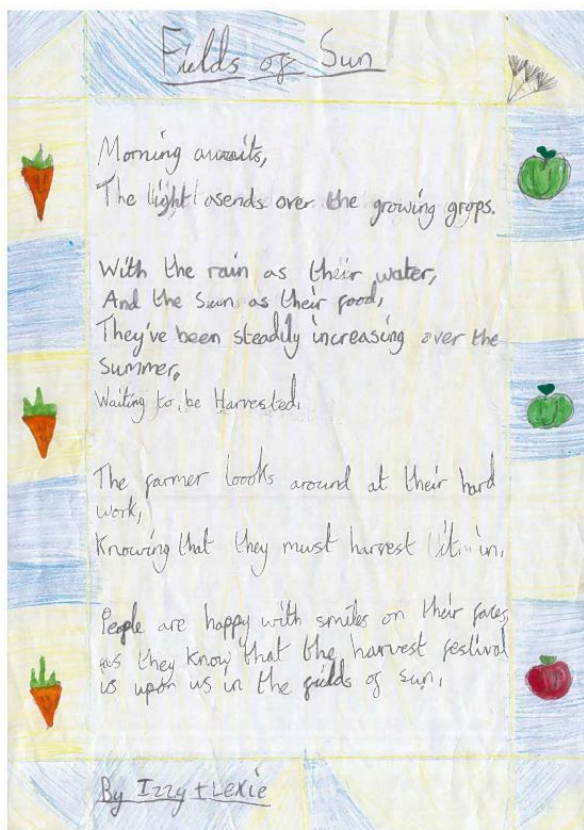 Fields of Sun
Morning awaits,
The light asends over the growing grops.
With the rain as their water,
And the Sun as their food,
They've been steadily increasing over the
Summer,
Waiting to be Harvested.
The farmer loooks around at their hard
work,
Knowing that they must harvest it in.
People are happy with smiles on their faces,
as they know that the harvest festival
is upon us in the fields of sun.
By Izzy + Lexie